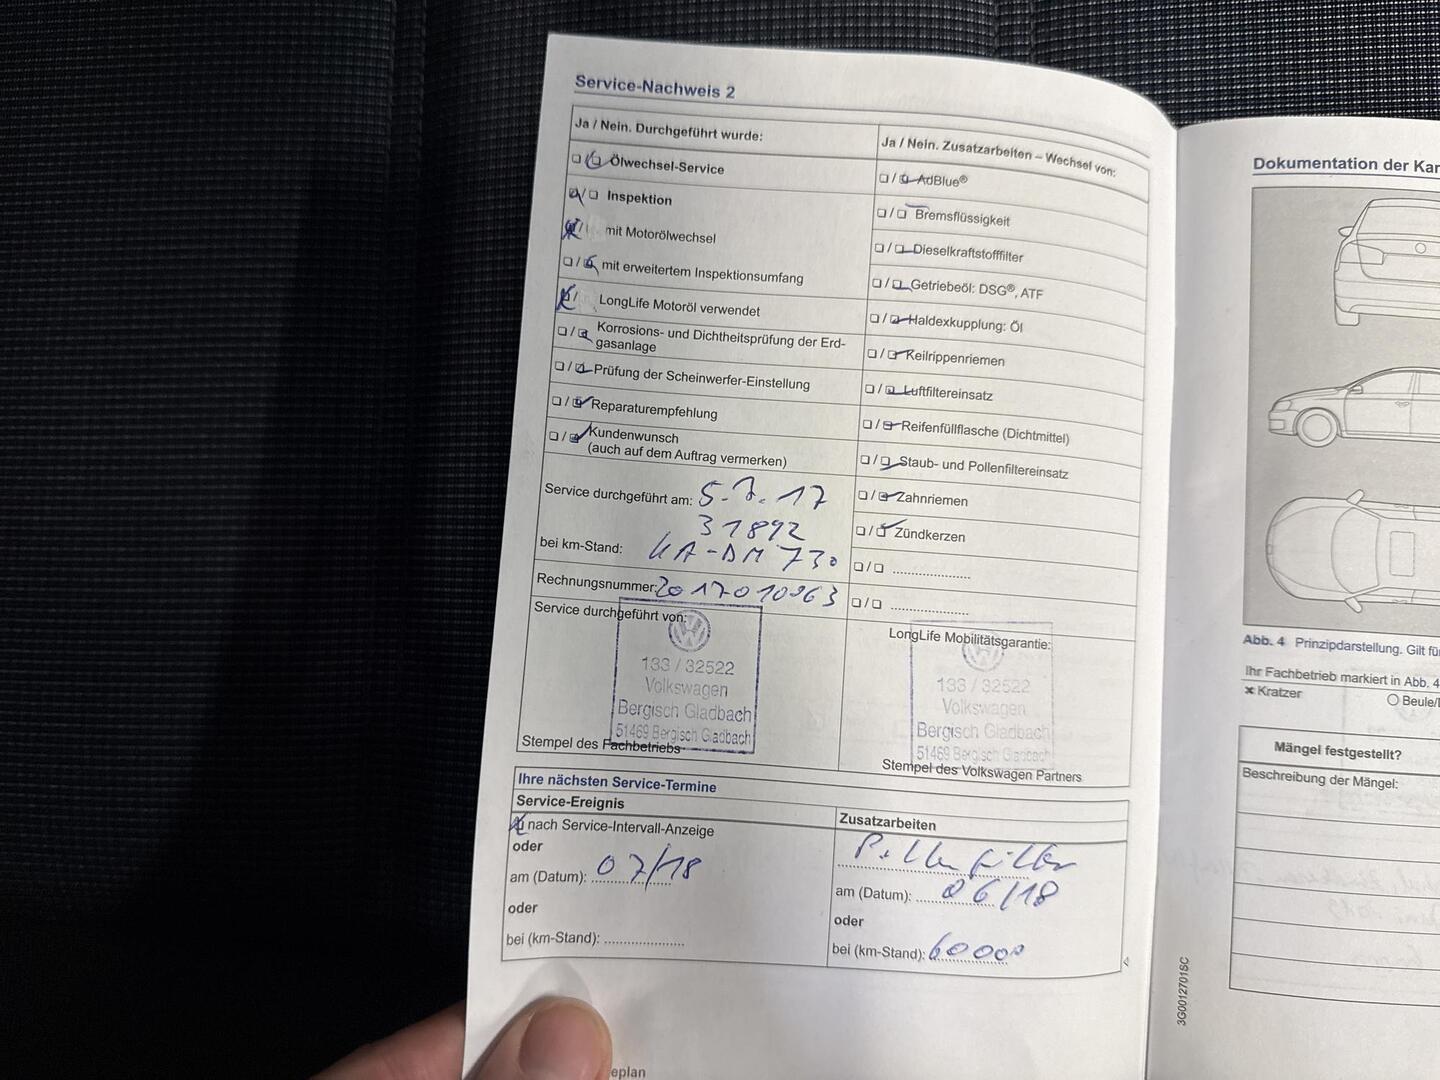 Service-Nachweis 2
Ja / Nein. Durchgeführt wurde:
Ölwechsel-Service
Inspektion
mit Motorölwechsel
mit erweitertem Inspektionsumfang
LongLife Motoröl verwendet
Korrosions- und Dichtheitsprüfung der Erd-
gasanlage
Prüfung der Scheinwerfer-Einstellung
Reparaturempfehlung
Kundenwunsch
(auch auf dem Auftrag vermerken)
Service durchgeführt am: 5.7.17
31892
bei km-Stand: KA-DM 730
Rechnungsnummer: 2017010963
Service durchgeführt von:
133 / 32522
Volkswagen
Bergisch Gladbach
51469 Bergisch Gladbach
Stempel des Fachbetriebs
Ja / Nein. Zusatzarbeiten – Wechsel von:
AdBlue®
Bremsflüssigkeit
Dieselkraftstofffilter
Getriebeöl: DSG®, ATF
Haldexkupplung: Öl
Keilrippenriemen
Luftfiltereinsatz
Reifenfüllflasche (Dichtmittel)
Staub- und Pollenfiltereinsatz
Zahnriemen
Zündkerzen
LongLife Mobilitätsgarantie:
133 / 32522
Volkswagen
Bergisch Gladbach
51469 Bergisch Gladbach
Stempel des Volkswagen Partners
Ihre nächsten Service-Termine
Service-Ereignis
nach Service-Intervall-Anzeige
oder
am (Datum): 07/18
oder
bei (km-Stand):
Zusatzarbeiten
Pollenfilter
am (Datum): 06/18
oder
bei (km-Stand): 60000
eplan
3G0012701SC
Dokumentation der Kar
Abb. 4 Prinzipdarstellung. Gilt fü
Ihr Fachbetrieb markiert in Abb. 4
Kratzer
Beule/
Mängel festgestellt?
Beschreibung der Mängel: